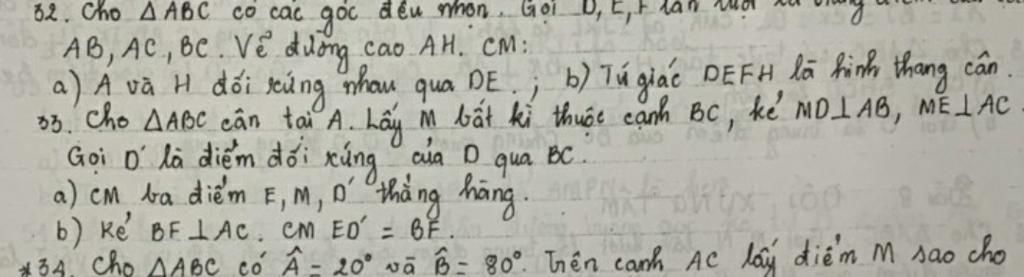 32. Cho △ABC có các góc đều nhọn. Gọi D, E, F lần lượt là trung điểm của
AB, AC, BC. Vẽ đường cao AH. CM:
a) A và H đối xứng nhau qua DE. ; b) Tứ giác DEFH là hình thang cân.
33. Cho △ABC cân tại A. Lấy M bất kì thuộc cạnh BC, kẻ MD⊥AB, ME⊥AC.
Gọi D' là điểm đối xứng của D qua BC.
a) CM ba điểm E, M, D' thẳng hàng.
b) Kẻ BF⊥AC. CM ED' = BF.
*34. Cho △ABC có Â = 20° và B̂ = 80°. Trên cạnh AC lấy điểm M sao cho